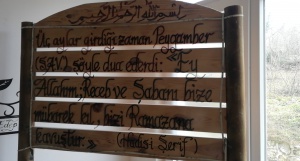 بسم الله الرحمن الرحيم
Üç aylar girdiği zaman Peygamber
(SAV) şöyle dua ederdi: "Ey
Allahım; Receb ve Şabanı bize
mübarek kıl, bizi Ramazana
kavuştur." (Hadisi Şerif)